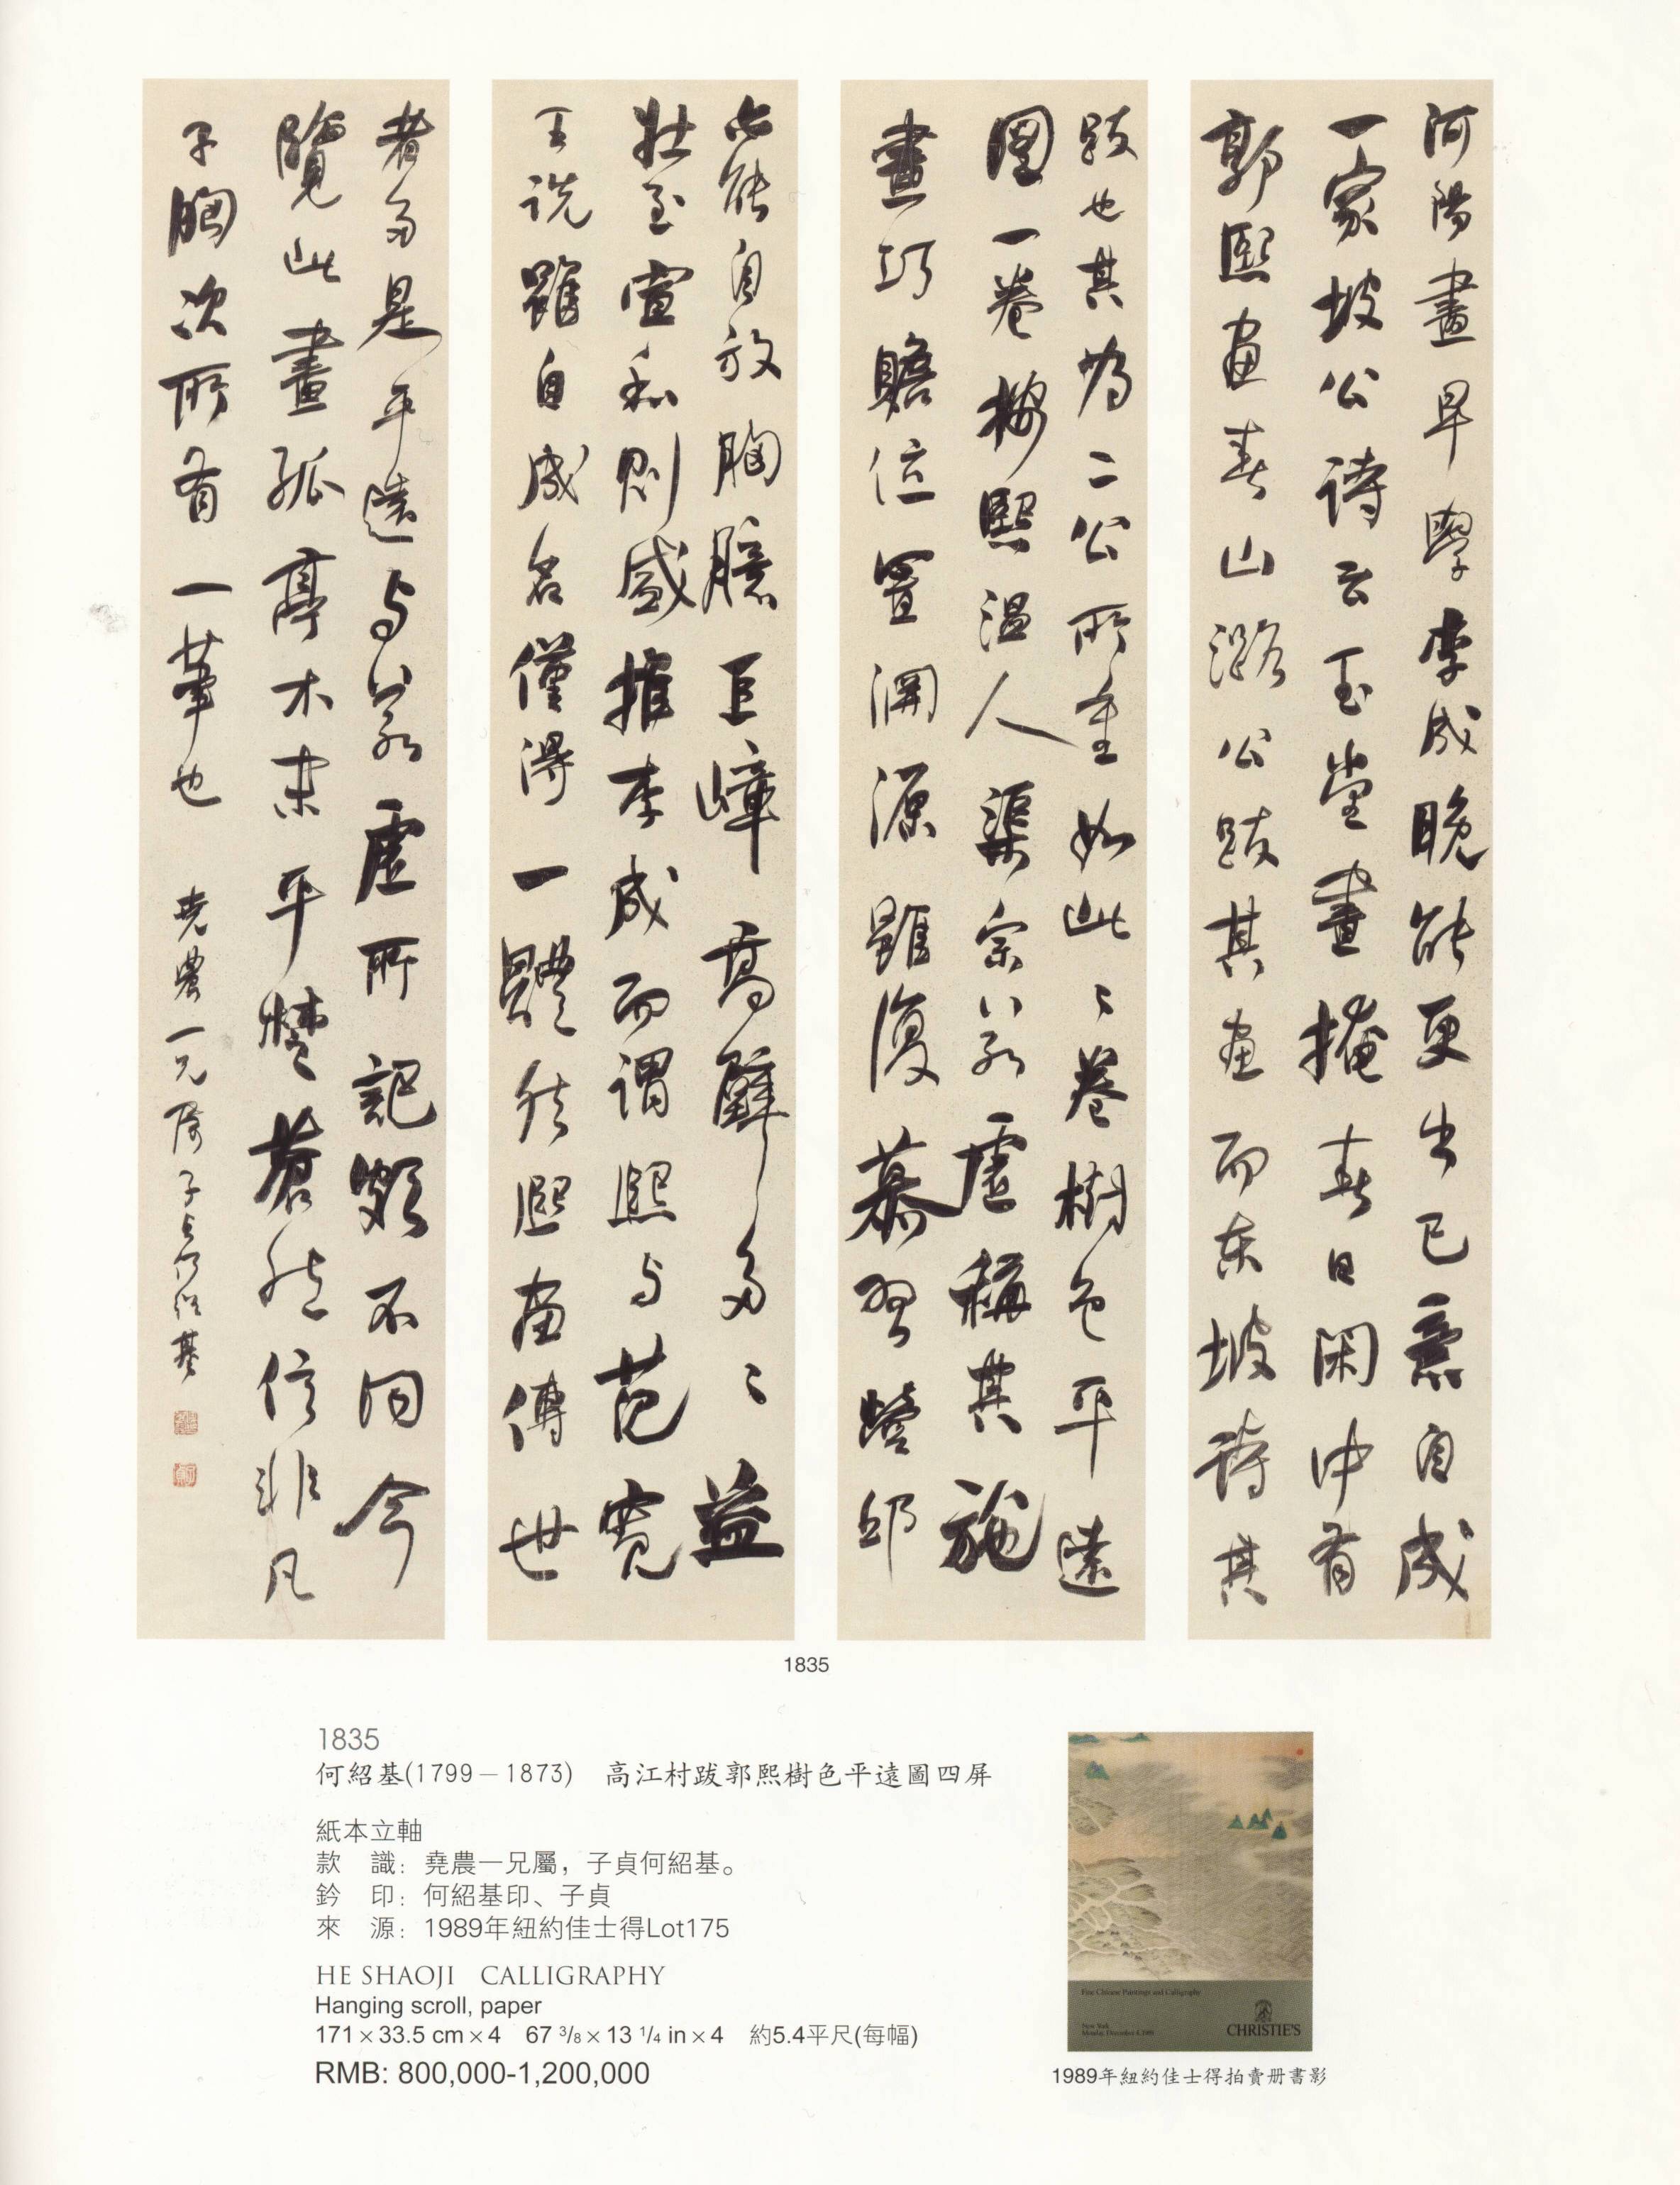 河陽畫早學李成晚能更出已意自成
一家坡公詩云玉堂晝掩春日閑中有
郭熙畫春山潞公跋其畫而東坡詩其
跋也其為二公所重如此此卷樹色平遠
圖一卷按熙溫人渠宗八若虛稱其施
畫巧贍位置淵源雖復慕習營邱
亦能自放胸臆巨嶂高壁多多益
壯至宣和則盛推李成而謂熙與范寬
王詵雖自成名僅得一體然熙畫傳世
者多是平遠與若虛所記頗不同今
覽此畫孤亭木末平楚蒼然信非凡
子胸次所有一筆也 堯農一兄屬子貞何紹基
1835
1835
何紹基(1799－1873) 高江村跋郭熙樹色平遠圖四屏
紙本立軸
款 識：堯農一兄屬，子貞何紹基。
鈐 印：何紹基印、子貞
來 源：1989年紐約佳士得Lot175
HE SHAOJI CALLIGRAPHY
Hanging scroll, paper
171×33.5 cm×4 67 3/8×13 1/4 in×4 約5.4平尺(每幅)
RMB: 800,000-1,200,000
Fine Chinese Paintings and Calligraphy
New York
Monday, December 4, 1989
CHRISTIE'S
1989年紐約佳士得拍賣冊書影